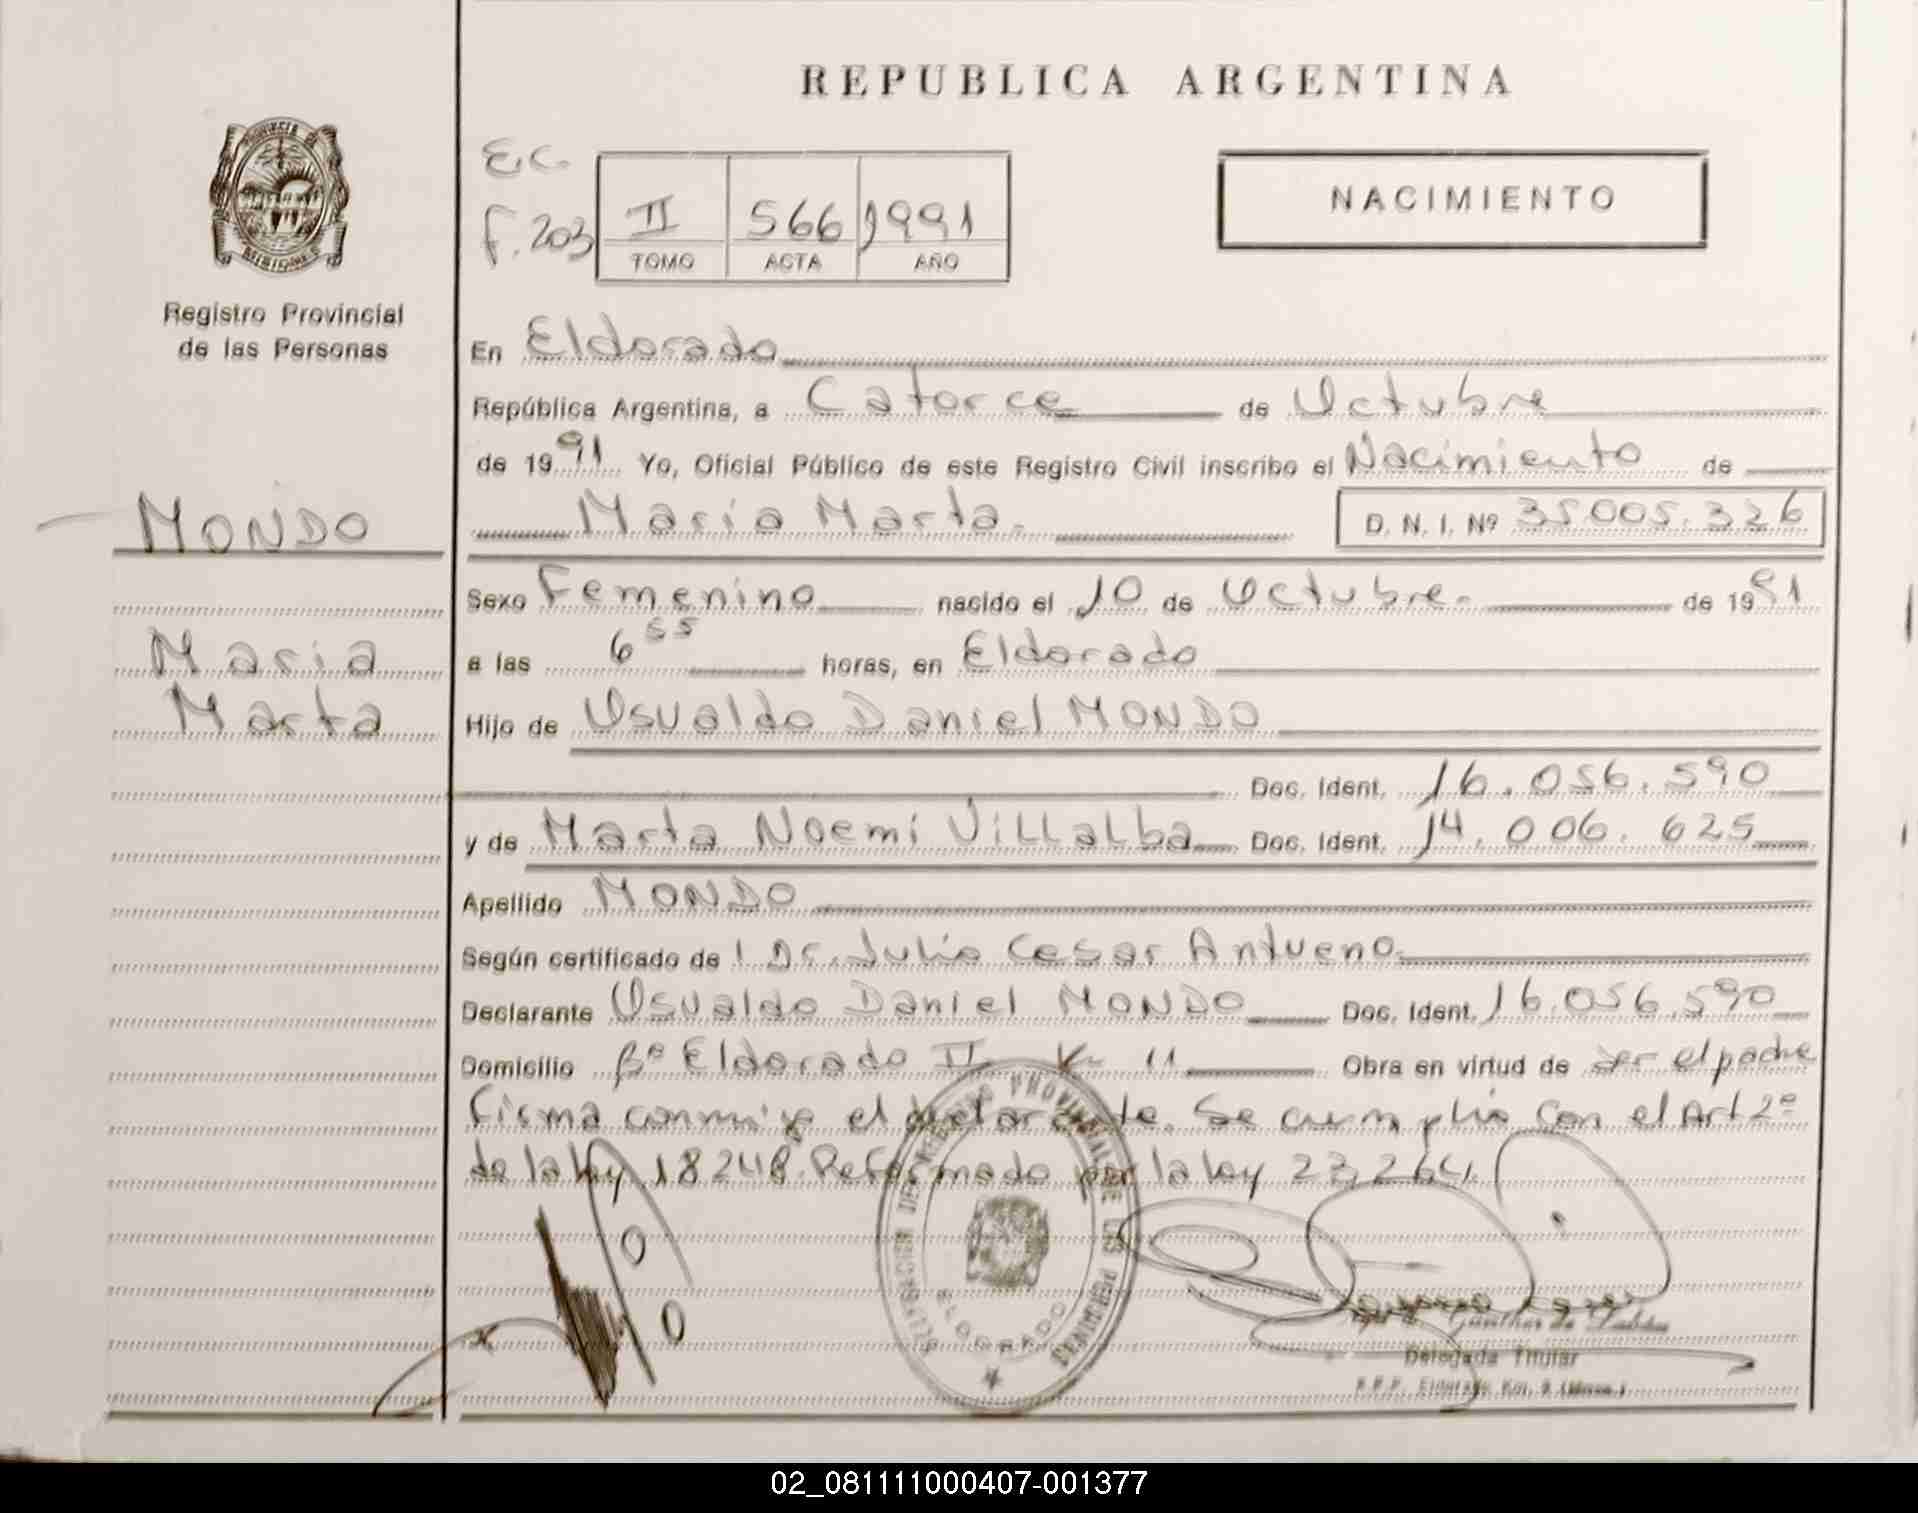 REPUBLICA ARGENTINA
PROVINCIA DE
MISIONES
Registro Provincial
de las Personas
E.C.
F. 203
II 566 1991
TOMO ACTA AÑO
NACIMIENTO
En Eldorado
República Argentina, a Catorce de Octubre
de 1991 Yo, Oficial Público de este Registro Civil inscribo el Nacimiento de
MONDO
Maria Marta. D. N. I. Nº 35.005.326
Sexo Femenino nacido el 10 de Octubre. de 1991
Maria
a las 6 55 horas, en Eldorado
Marta
Hijo de Osvaldo Daniel MONDO
Doc. Ident. 16.056.590
y de Marta Noemí Villalba Doc. Ident. 14.006.625
Apellido MONDO
Según certificado de Dr. Julio Cesar Antueno.
Declarante Osvaldo Daniel MONDO Doc. Ident. 16.056.590
Domicilio Bº Eldorado II K 11 Obra en virtud de ser el padre
Firma conmigo el declarante. Se cumplio con el Art 2º
de la ley 18248. Reformado por la ley 23,264.
REGISTRO PROVINCIAL DE LAS PERSONAS
ELDORADO
Delegada Titular
R.P.P. Eldorado Km. 9 (Mnes.)
02_081111000407-001377